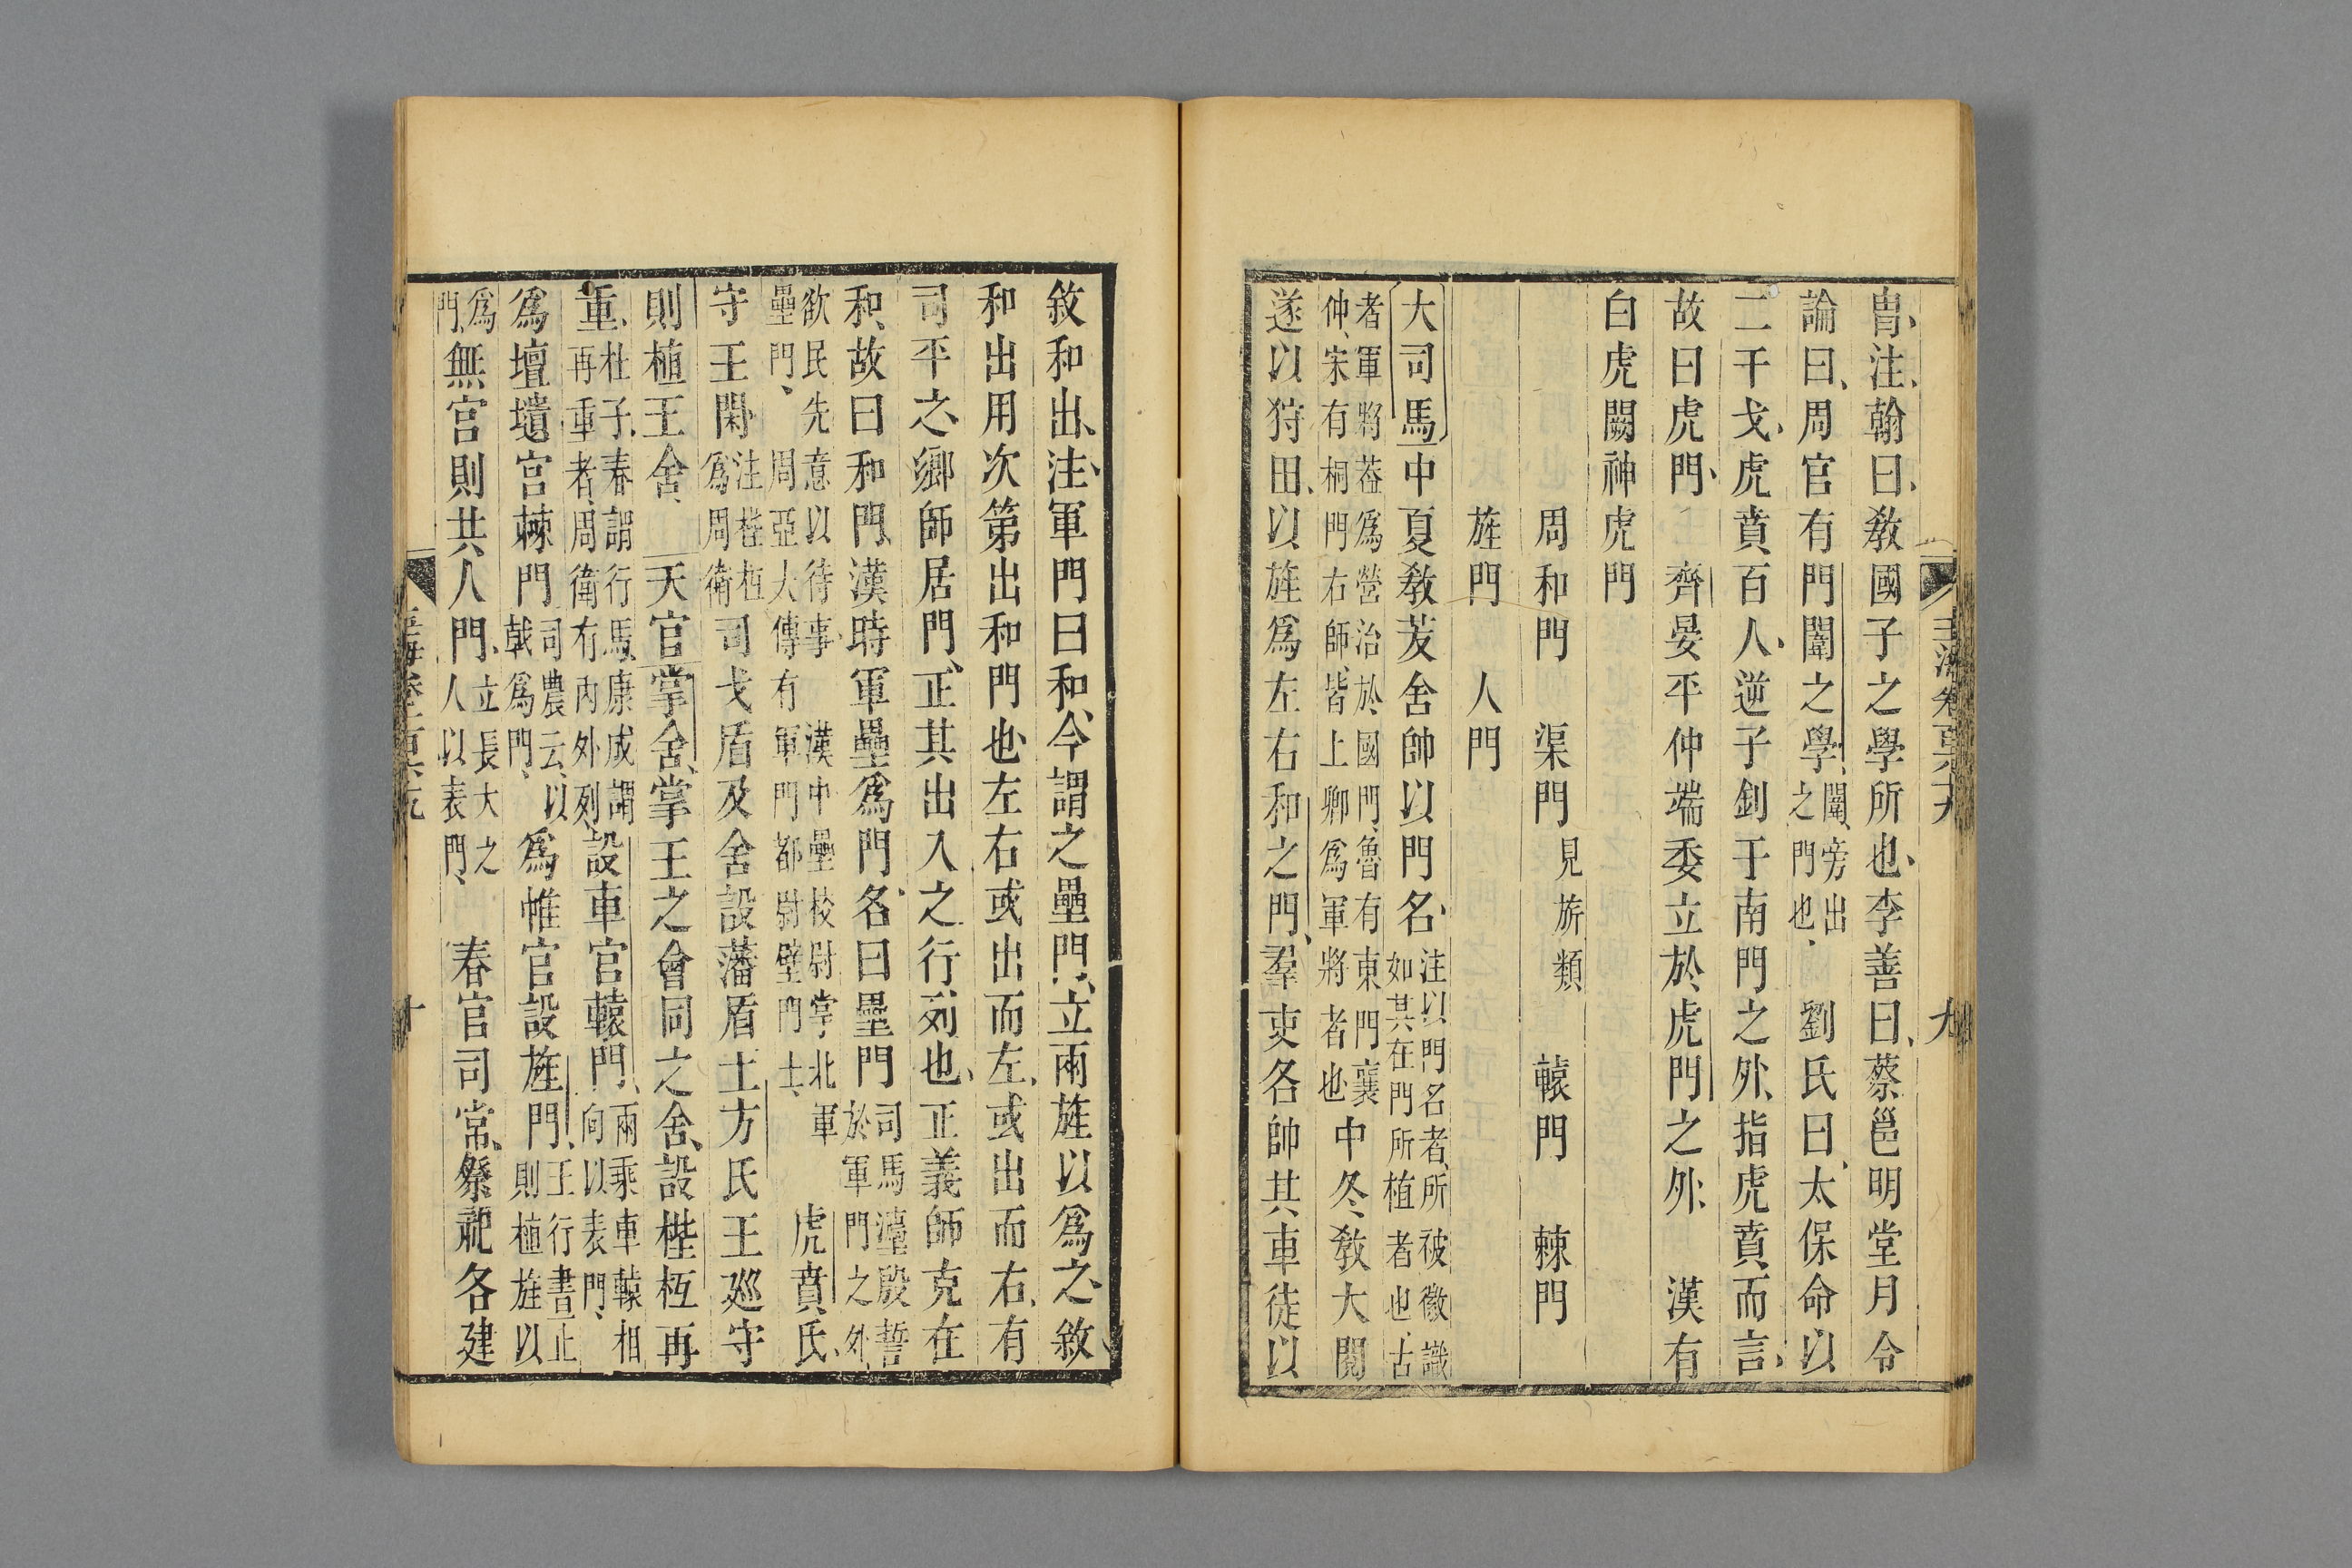 玉海卷百六十九 九
冑注翰曰教國子之學所也李善曰蔡邕明堂月令
論曰周官有門闈之學闈旁出之門也劉氏曰太保命以
二干戈虎賁百人逆子釗于南門之外指虎賁而言
故曰虎門 齊晏平仲端委立於虎門之外 漢有
白虎闕神虎門
周和門 渠門見旂類 轅門 棘門
旌門 人門
大司馬中夏教茇舍帥以門名注以門名者所被徽識如其在門所植者也古
者軍將葢為營治於國門魯有東門襄仲宋有桐門右師皆上卿為軍將者也中冬教大閱
遂以狩田以旌為左右和之門羣吏各帥其車徒以
敘和出注軍門曰和今謂之壘門立兩旌以為之敘
和出用次第出和門也左右或出而左或出而右有
司平之鄉師居門正其出入之行列也正義師克在
和故曰和和門漢時軍壘為門名曰壘門司馬灋殷誓於軍門之外
欲民先意以待事 漢中壘校尉掌北軍壘門 周亞夫傳有軍門都尉壁門士 虎賁氏
守王閑注梐枑為周衛 司戈盾及舍設藩盾土方氏王廵守
則植王舍 天官掌舍掌王之會同之舍設梐枑再
重杜子春謂行馬康成謂再重者周衛有内外列設車宮轅門兩乘車轅相向以表門
為壇壝宮棘門司農云以戟為門 為帷宮設旌門王行晝止則植旌以
為門無宮則共人門立長大之人以表門 春官司常祭祀各建
玉海卷百六十九 十